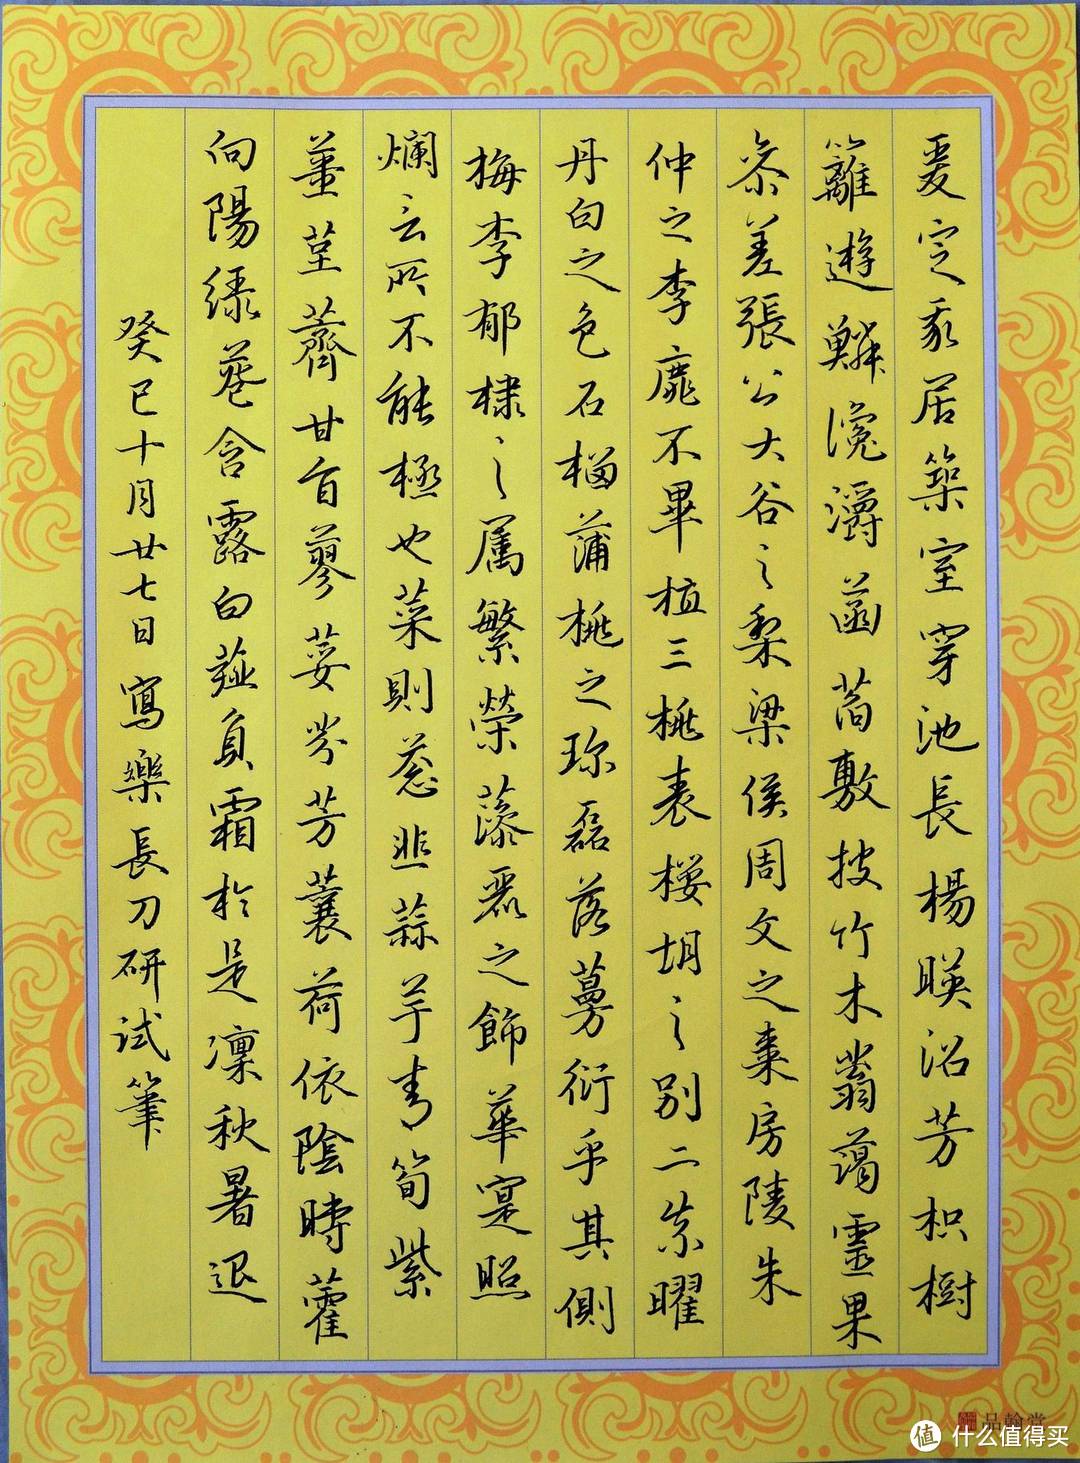 爰定我居築室穿池長楊暎沼芳枳樹
籬遊鱗瀺灂菡萏敷披竹木蓊藹靈果
参差張公大谷之梨梁侯周文之棗房陵朱
仲之李靡不畢植三桃表櫻胡之别二柰曜
丹白之色石榴蒲桃之珎磊落蔓衍乎其側
梅李郁棣之属繁榮藻麗之飾華寔照
爛言所不能極也菜則葱韭蒜芋青筍紫
薑堇薺甘旨蓼荾芬芳蘘荷依陰時藿
向陽緑葵含露白薤負霜於是凜秋暑退
癸巳十月廿七日寫樂長刀研試筆
品翰堂
值 什么值得买